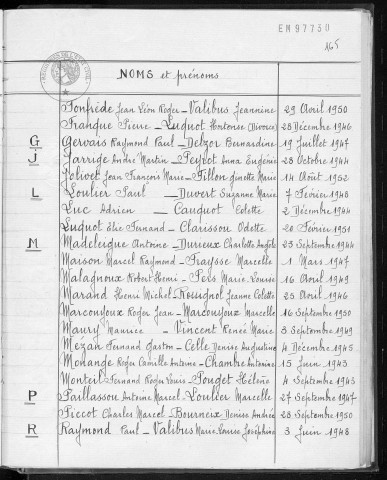 EM 97730
165
NOMS et prénoms
Fonfrède Jean Léon Roger - Valibus Jeannine 29 Avril 1950
Franque Pierre - Luquot Hortense (Divorce) 28 Décembre 1946
G Gervais Raymond Paul - Delzor Bernardine 19 Juillet 1947
J Jarrige André Martin - Peyrot Anna Eugénie 28 Octobre 1944
Jolivet Jean François Marie - Fillon Ginette Marie 14 Août 1952
L Loulier Paul - Duvert Suzanne Marie 7 Février 1948
Luc Adrien - Cauquot Colette 2 Décembre 1944
Luquot Elie Fernand - Clarissou Odette 20 Février 1951
M Madeleuque Antoine - Durieux Charlotte Angèle 23 Septembre 1944
Maison Marcel Raymond - Fraysse Marcelle 1 Mars 1947
Malagnoux Robert Henri - Pers Marie Louise 16 Avril 1949
Marand Henri Michel - Rossignol Jeanne Colette 25 Avril 1946
Marcouyoux Roger Jean - Marcouyoux Marcelle 16 Septembre 1950
Maury Maurice - Vincent Renée Marie 3 Septembre 1949
Mezan Fernand Gaston - Celle Denise Augustine 4 Décembre 1945
Monange Roger Camille Antoine - Chambre Antoinine 15 Juin 1943
Monteil Fernand Roger Louis - Pouget Hélène 4 Septembre 1943
P Paillassou Antoine Marcel - Loulier Marcelle 27 Septembre 1947
Piccot Charles Marcel - Bourneix Denise Andrée 28 Septembre 1950
R Raymond Paul - Valibus Marie Louise Joséphine 3 Juin 1948